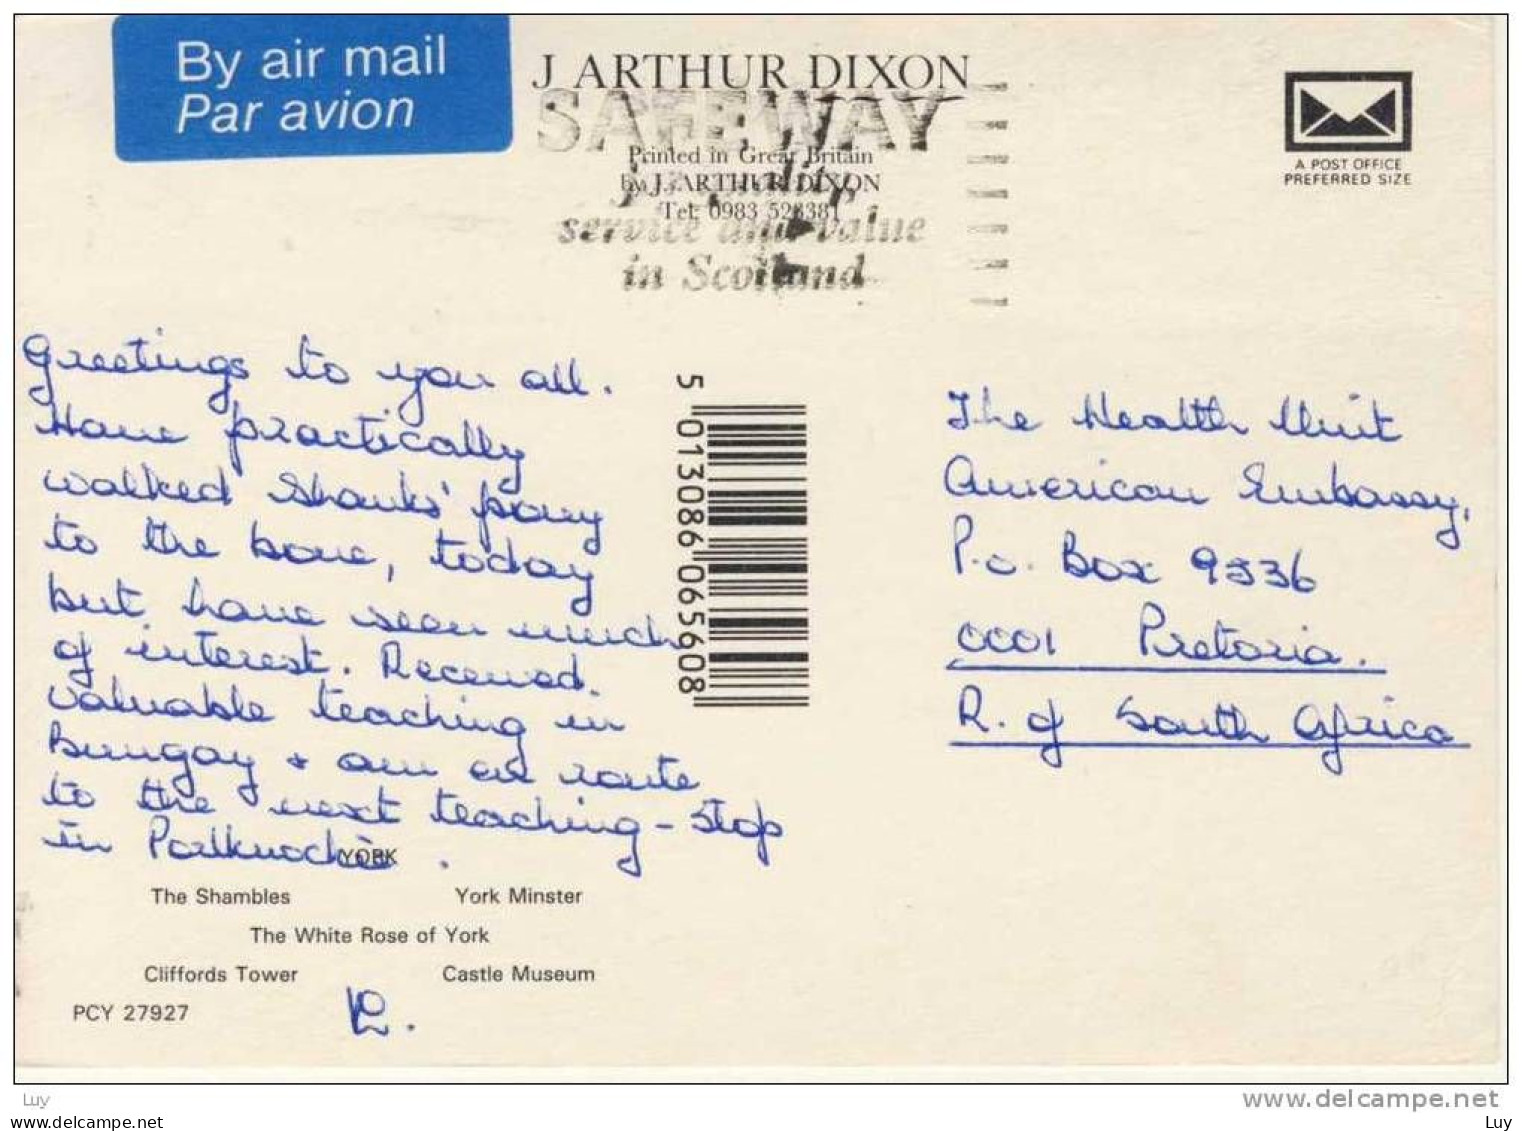 By air mail
Par avion
J ARTHUR DIXON
SAFEWAY
Printed in Great Britain
by J. ARTHUR DIXON
Tel: 0983 523381
service and value
in Scotland
A POST OFFICE
PREFERRED SIZE
Greetings to you all.
Have practically
walked Shanks' pony
to the bone, today
but have seen much
of interest. Received.
valuable teaching in
Bungay + am en route
to the next teaching-stop
in
YORK
The Shambles
York Minster
The White Rose of York
Cliffords Tower
Castle Museum
PCY 27927
5 013086 065608
The Health Unit
American Embassy,
P.O. Box 9536
0001 Pretoria.
R. of South Africa
Luy
www.delcampe.net
www.delcampe.net
Luy